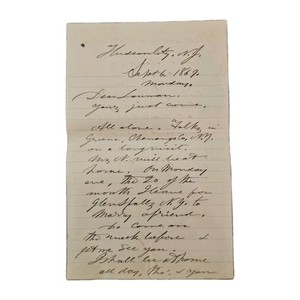 Hudson City, N.J.
Sept 6, 1869.
Monday.
Dear
Yours just come.
All alone. Folks in
Greene, Chenango Co, N.Y.
on a long visit.
Mr. N. will be at
home. On Monday
eve, the 20 of the
month I leave for
Glens Falls, N.Y. to
marry a friend.
So come on
the week before &
let me see you.
I shall be at home
all day, Thu.